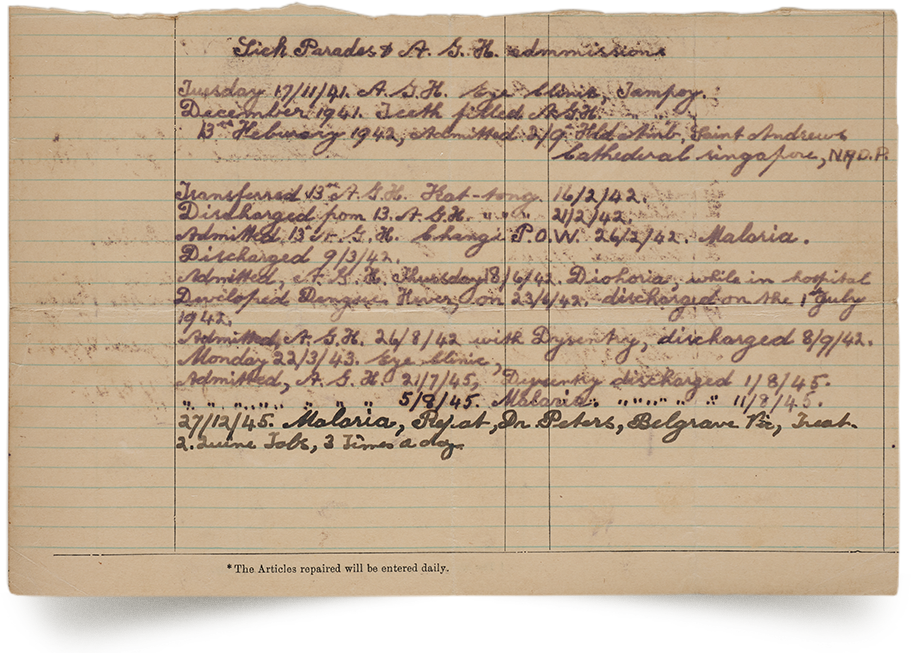 Sick Parades & A. G. H. admmissions
Tuesday 17/11/41. A. G.H. Eye Clinic, Tampoy.
December 1941. Teeth filled A.G.H.
13th Feburary 1942, Admitted 2/9th Fld Amb. Saint Andrews
Cathederal singapore, N.P.D.P.
Transferred 13th A.G.H. Kat-tong. 16/2/42.
Discharged from 13. A.G.H. " " " 21/2/42.
Admitted 13th A. G. H. Changi P.O.W. 26/2/42. Malaria.
Discharged 9/3/42.
Admitted, A. G. H. Thursday 18/6/42. Diohoria, while in hospital
Developed Dengue Fever, on 23/6/42, discharged on the 1st July
1942.
Admitted, A.G.H. 26/8/42 with Dysentry, discharged 8/9/42.
Monday 22/3/43. Eye Clinic,
Admitted, A. G. H. 21/7/45, Dysentry discharged 1/8/45.
" " " " " " " " 5/8/45. Malaria " " " " " " 11/8/45.
27/12/45. Malaria, Repat, Dr. Peters, Belgrave Vic, Treat.
2. Quine Tabs, 3 Times a day.
* The Articles repaired will be entered daily.